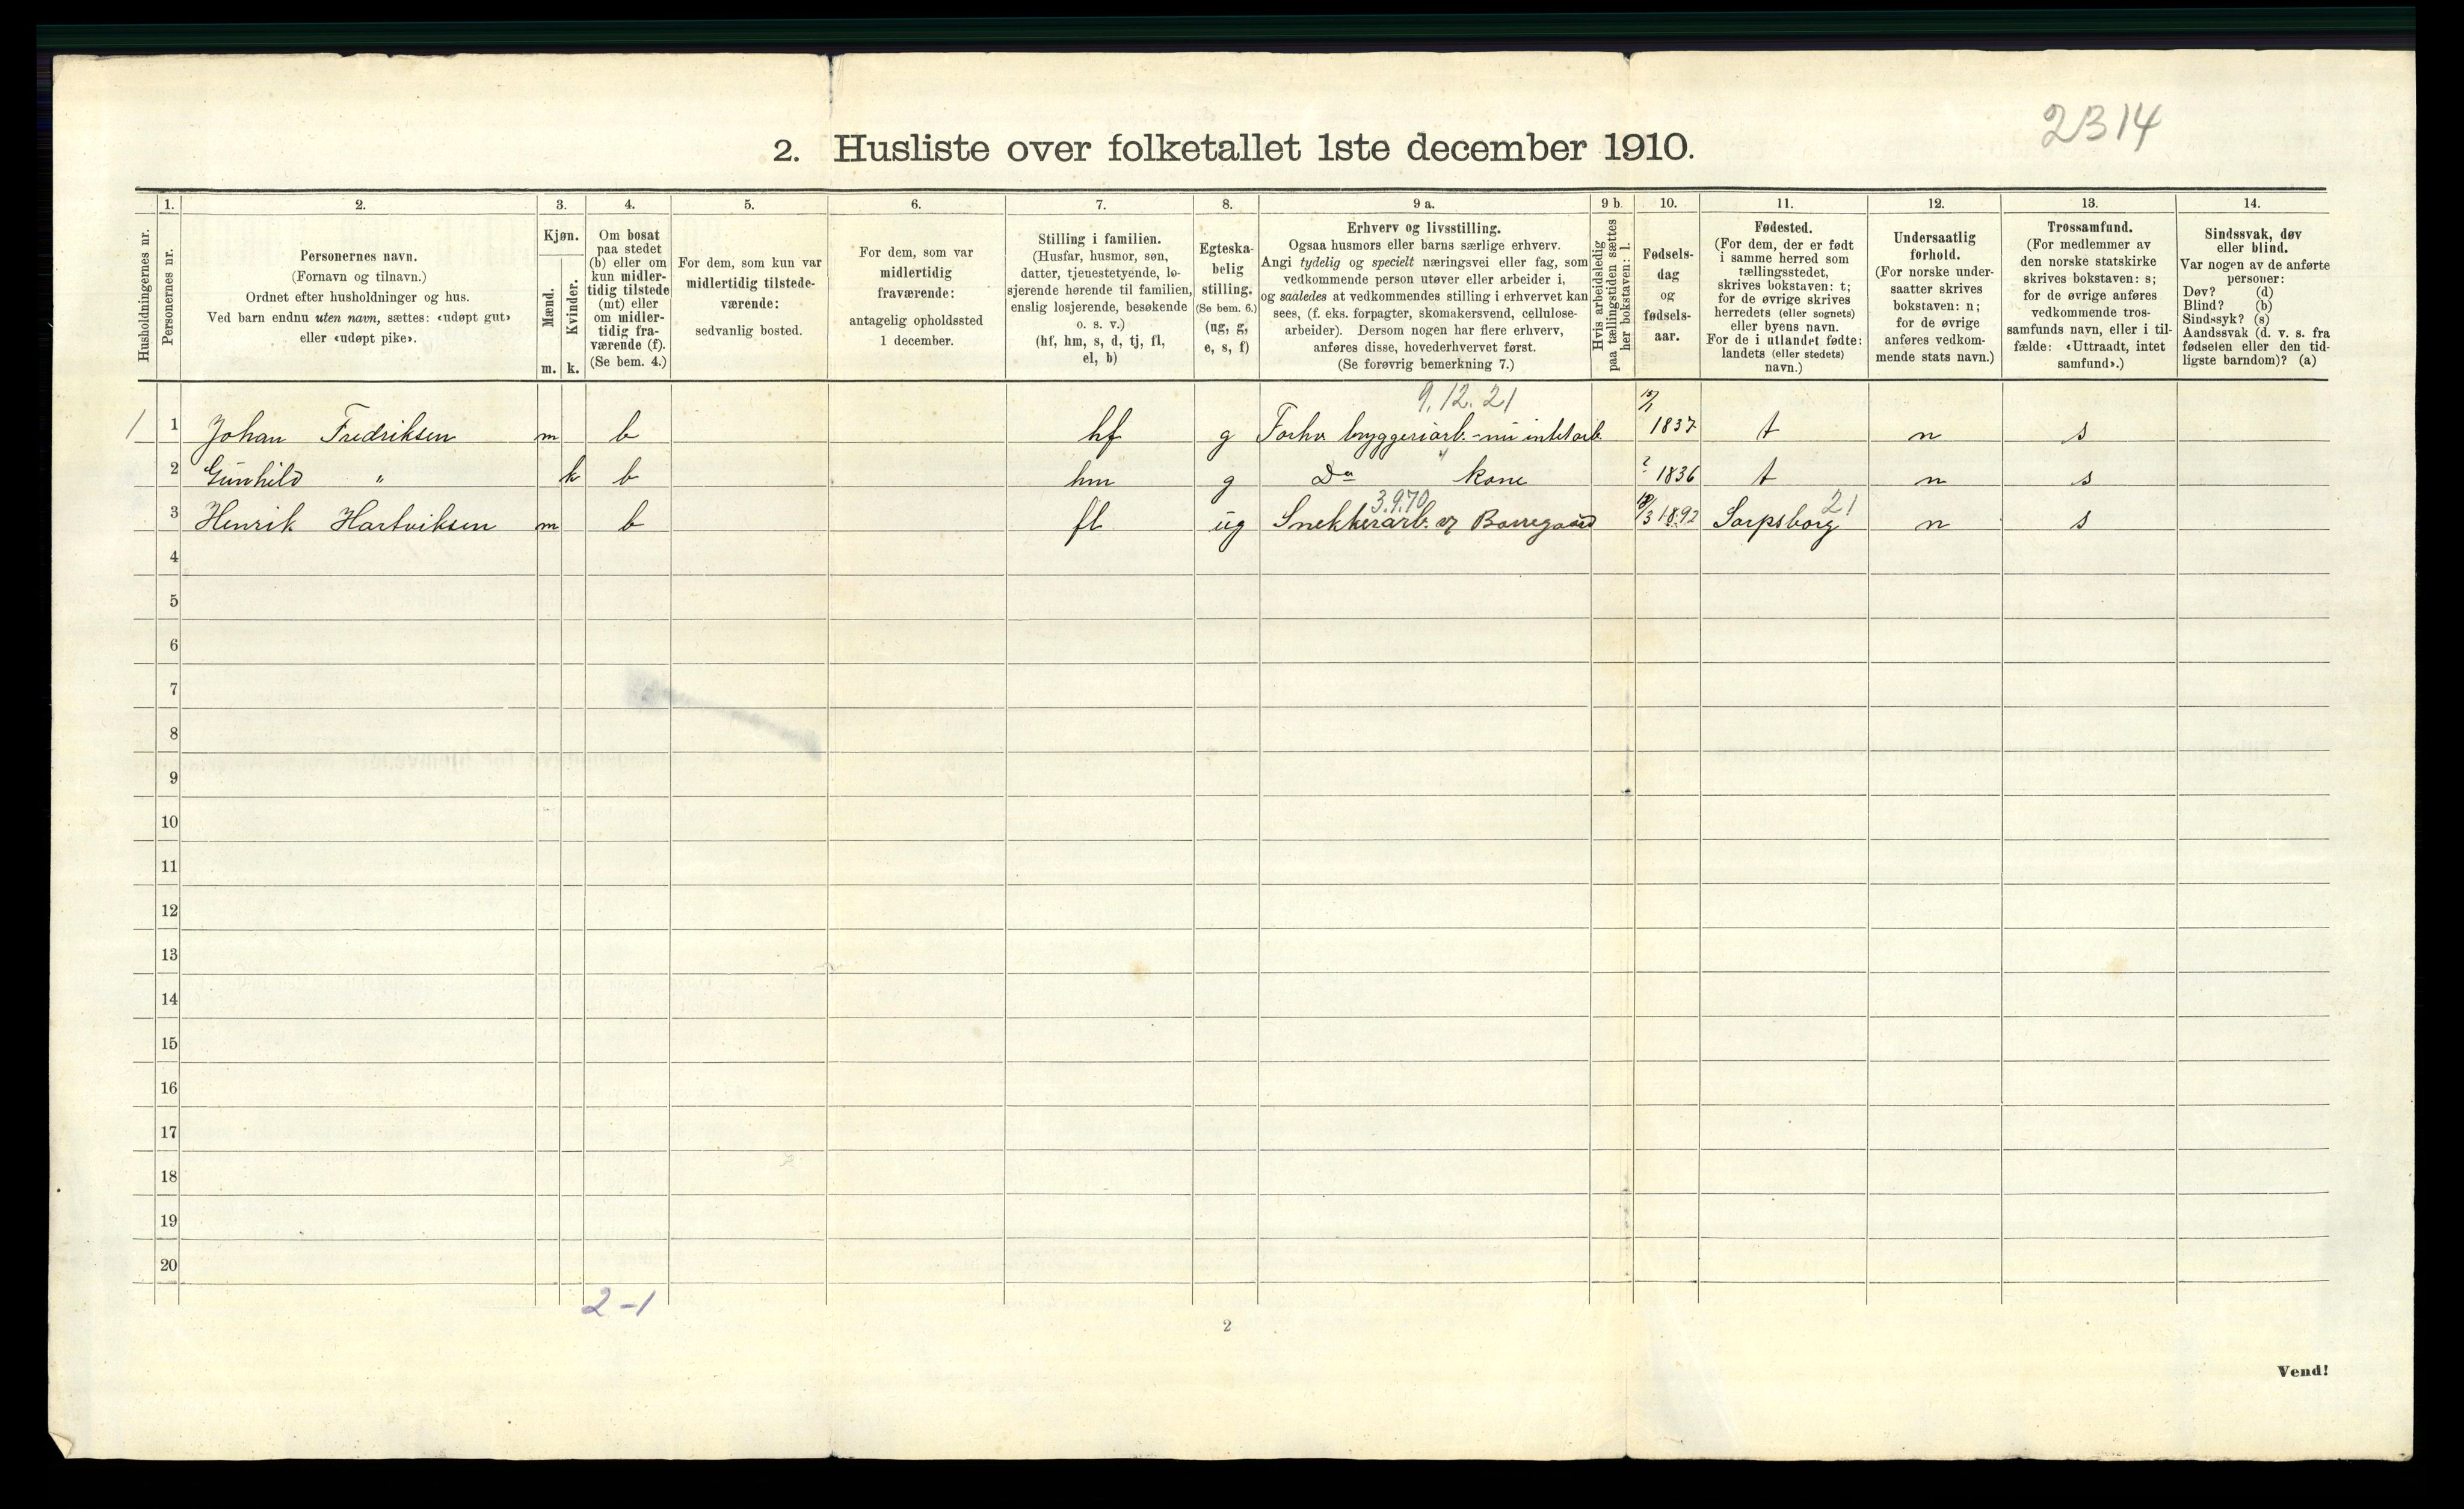 2314
2. Husliste over folketallet 1ste december 1910.
Husholdningernes nr.
1.
Personernes nr.
2.
Personernes navn.
(Fornavn og tilnavn.)
Ordnet efter husholdninger og hus.
Ved barn endnu uten navn, sættes: «udøpt gut»
eller «udøpt pike».
3.
Kjøn.
Mænd.
Kvinder.
m. k.
4.
Om bosat
paa stedet
(b) eller om
kun midler-
tidig tilstede
(mt) eller
om midler-
tidig fra-
værende (f).
(Se bem. 4.)
5.
For dem, som kun var
midlertidig tilstede-
værende:
sedvanlig bosted.
6.
For dem, som var
midlertidig
fraværende:
antagelig opholdssted
1 december.
7.
Stilling i familien.
(Husfar, husmor, søn,
datter, tjenestetyende, lo-
sjerende hørende til familien,
enslig losjerende, besøkende
o. s. v.)
(hf, hm, s, d, tj, fl,
el, b)
8.
Egteska-
belig
stilling.
(Se bem. 6.)
(ug, g,
e, s, f)
9 a.
Erhverv og livsstilling.
Ogsaa husmors eller barns særlige erhverv.
Angi tydelig og specielt næringsvei eller fag, som
vedkommende person utøver eller arbeider i,
og saaledes at vedkommendes stilling i erhvervet kan
sees, (f. eks. forpagter, skomakersvend, cellulose-
arbeider). Dersom nogen har flere erhverv,
anføres disse, hovederhvervet først.
(Se forøvrig bemerkning 7.)
9 b
Hvis arbeidsledig
paa tællingstiden sættes
her bokstaven: l.
10.
Fødsels-
dag
og
fødsels-
aar.
11.
Fødested.
(For dem, der er født
i samme herred som
tællingsstedet,
skrives bokstaven: t;
for de øvrige skrives
herredets (eller sognets)
eller byens navn.
For de i utlandet fødte:
landets (eller stedets)
navn.)
12.
Undersaatlig
forhold.
(For norske under-
saatter skrives
bokstaven: n;
for de øvrige
anføres vedkom-
mende stats navn.)
13.
Trossamfund.
(For medlemmer av
den norske statskirke
skrives bokstaven: s;
for de øvrige anføres
vedkommende tros-
samfunds navn, eller i til-
fælde: «Uttraadt, intet
samfund».)
14.
Sindssvak, døv
eller blind.
Var nogen av de anførte
personer:
Døv? (d)
Blind? (b)
Sindssyk? (s)
Aandssvak (d. v. s. fra
fødselen eller den tid-
ligste barndom)? (a)
9.12.21
1 1 Johan Fredriksen m b hf g Forhv bryggeriarb. - nu intet arb. 1837 t n s
2 Gunhild " k b hm g Do kone ? 1836 t n s
3.9.70 21
3 Henrik Hartviksen m b fl ug Snekkerarb. v Borregaard 18/3 1892 Sarpsborg n s
4
5
6
7
8
9
10
11
12
13
14
15
16
17
18
19
20
2-1
2
Vend!